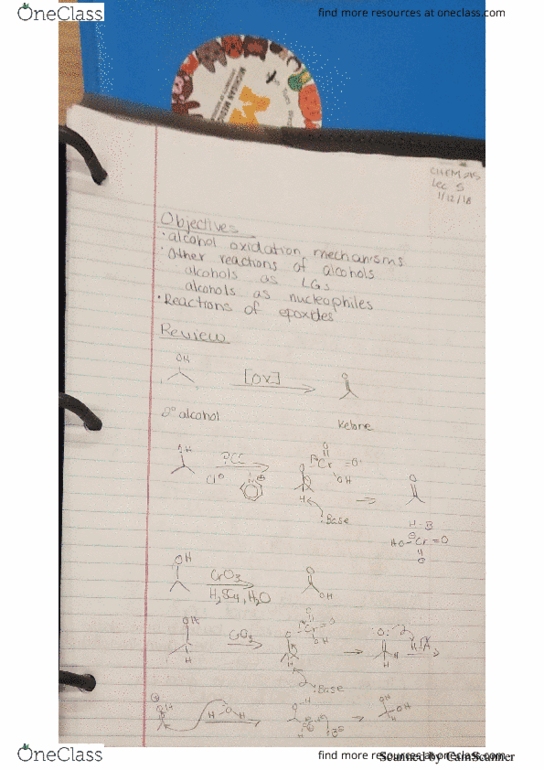 OneClass
find more resources at oneclass.com
Lec 5
1/12/18
Objectives
· alcohol oxidation mechanisms
· Other reactions of alcohols
alcohols as LGs
alcohols as nucleophiles
· Reactions of epoxides
Review
OH
[OX]
O
2° alcohol
Ketone
PCC
Cl⊖
OH
O
H
:Base
H-B
HO-Cr=O
O
OH
CrO3
H2SO4, H2O
O
OH
CrO3
OH
H
:Base
H
H
OH
OneClass
find more resources at oneclass.com
Scanned by CamScanner